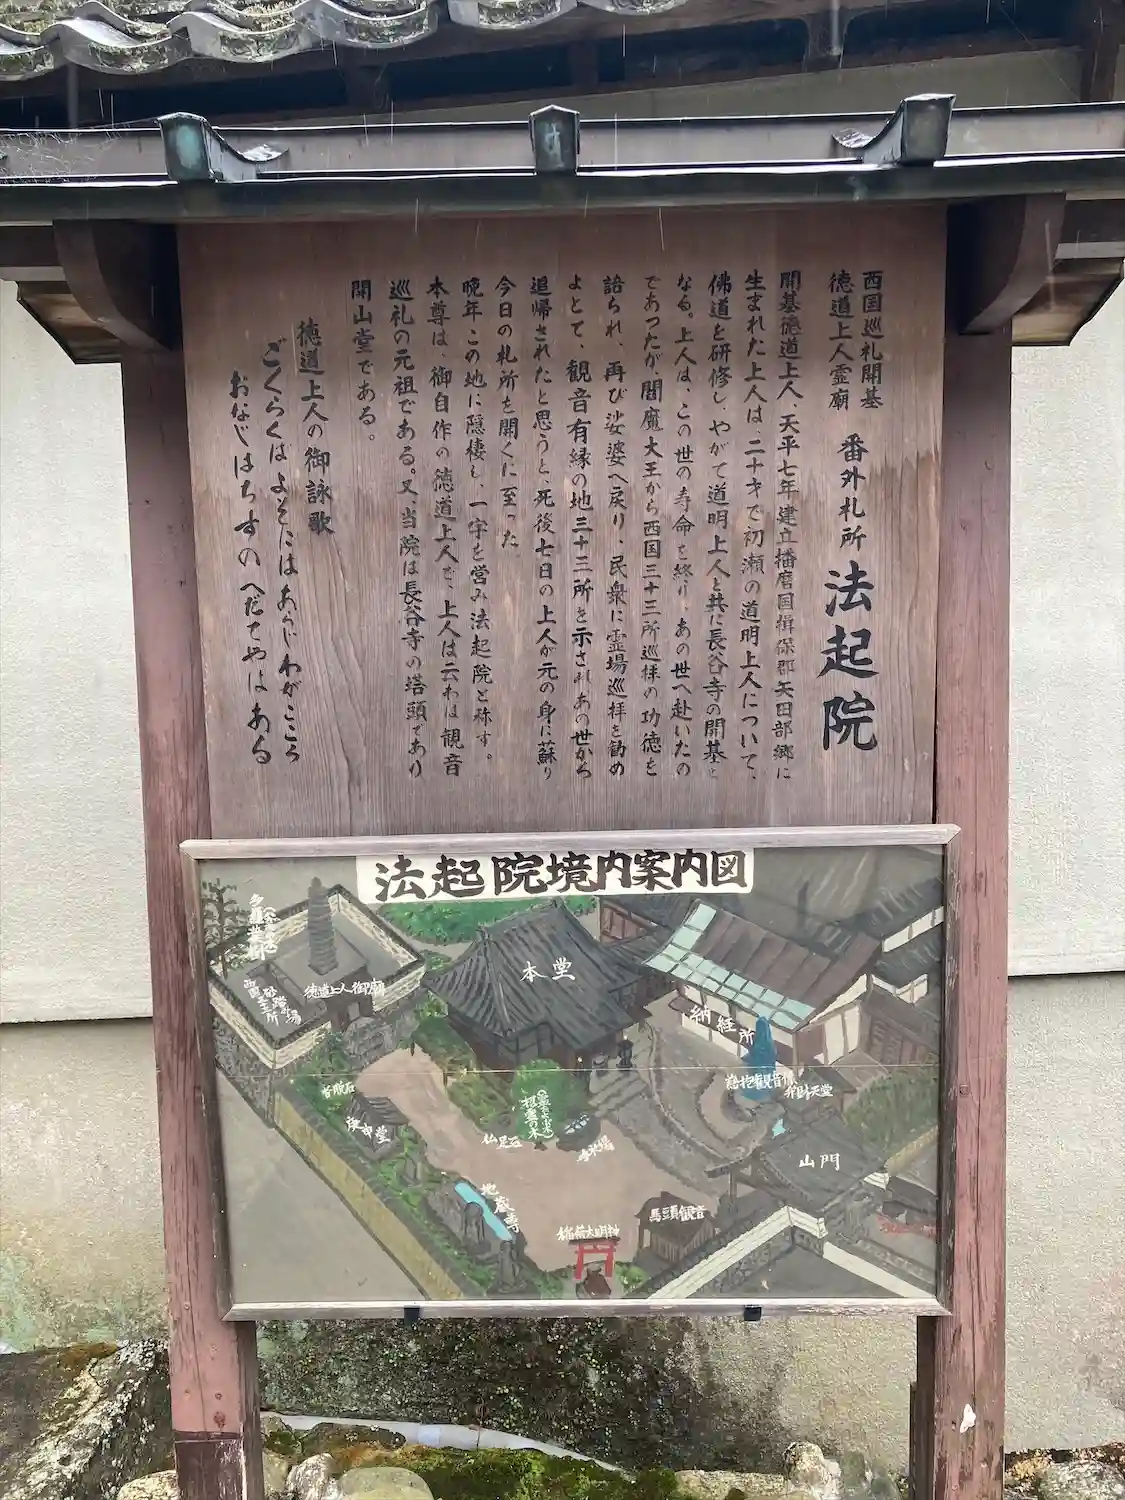 西国巡礼開基
徳道上人霊廟
番外札所 法起院
開基徳道上人、天平七年建立播磨国揖保郡矢田部郷に
生まれた上人は、二十才で初瀬の道明上人について、
佛道を研修し、やがて道明上人と共に長谷寺の開基と
なる。上人は、この世の寿命を終り、あの世へ赴いたの
であったが、閻魔大王から西国三十三所巡拝の功徳を
語られ、再び娑婆へ戻り、民衆に霊場巡拝を勧め
よとて、観音有縁の地三十三所を示され、あの世から
追帰されたと思うと、死後七日の上人が元の身に蘇り
今日の札所を開くに至った
晩年この地に隠棲し、一宇を営み法起院と称す。
本尊は、御自作の徳道上人で、上人は云わば観音
巡礼の元祖である。又当院は長谷寺の塔頭であり
開山堂である。
徳道上人の御詠歌
ごくらくはよそにはあらじわがこころ
おなじはちすのへだてやはある
法起院境内案内図
本堂
徳道上人御廟
西国三十三所
お砂踏場
納経所
弁財天堂
沓脱石
庚申堂
仏足石
山門
馬頭観音
稲荷大明神